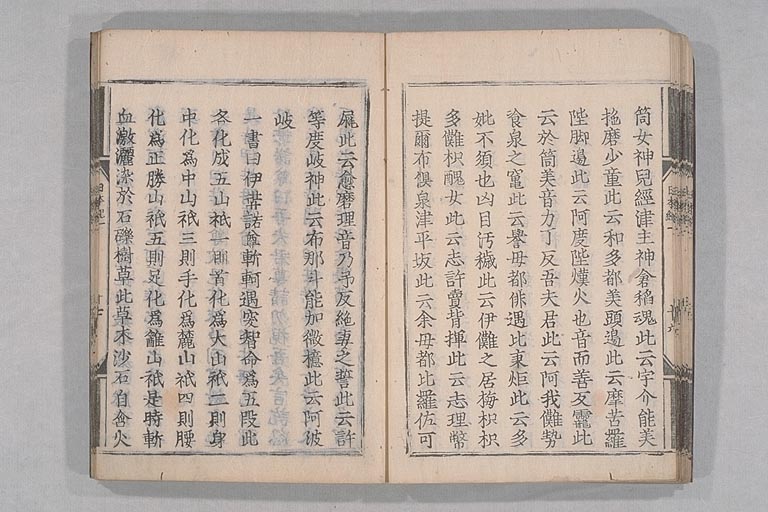 筒女神兒經津主神倉稻魂此云宇介能美
拖磨少童此云和多都美頭邊此云摩苦羅
陛脚邊此云阿度陛熯火也音而善反龗此
云於箇美音力丁反吾夫君此云阿我儺勢
飡泉之竈此云譽母都俳遇比秉炬此云多
妣不須也凶目汚穢此云伊儺之居梅枳枳
多儺枳醜女此云志許賣背揮此云志理幣
提爾布倶泉津平坂此云余母都比羅佐可
屍此云愈磨理音乃弔反絶妻之誓此云許
等度岐神此云布那斗能加微檍此云阿波
岐
一書曰伊弉諾尊斬軻遇突智命爲五段此
各化成五山祇一則首化爲大山祇二則身
中化爲中山祇三則手化爲麓山祇四則腰
化爲正勝山祇五則足化爲䨄山祇是時斬
血激灑染於石礫樹草此草木沙石自含火